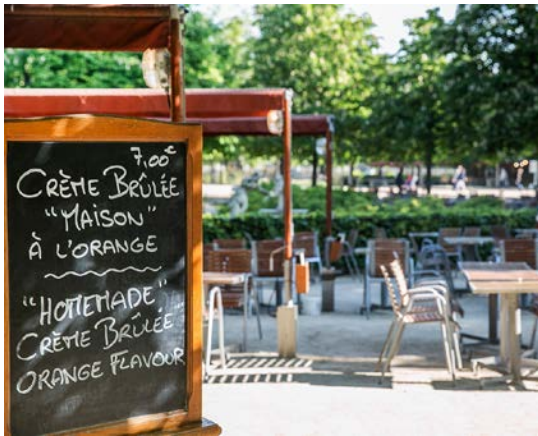 7,00€
CRÈME BRÛLÉE
"MAISON"
À L'ORANGE
"HOMEMADE"
CRÈME BRÛLÉE
ORANGE FLAVOUR